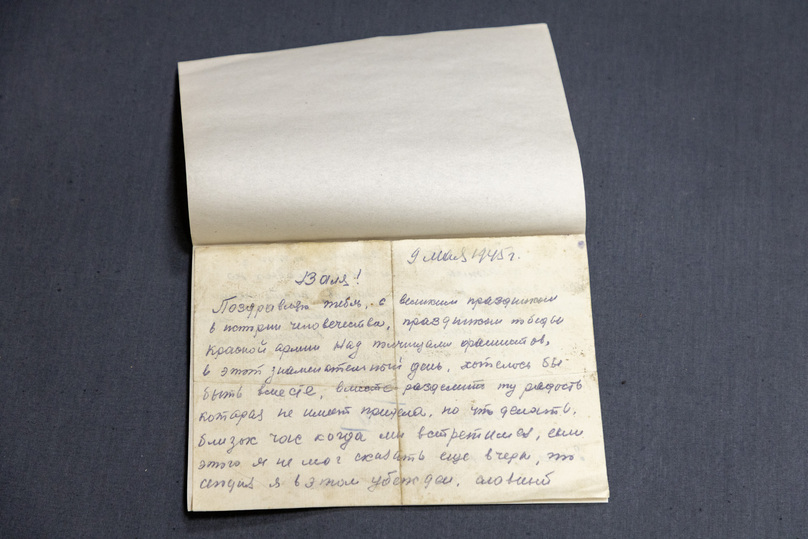 9 Мая 1945 г.
Валя!
Поздравляю тебя, с великим праздником
в истории человечества, праздником победы
Красной армии над полчищами фашистов,
в этот знаменательный день, хотелось бы
быть вместе, вместе разделить ту радость
которая не имеет предела, но что делать,
близок час когда мы встретимся, если
этого я не мог сказать еще вчера, то
сегодня я в этом убежден,